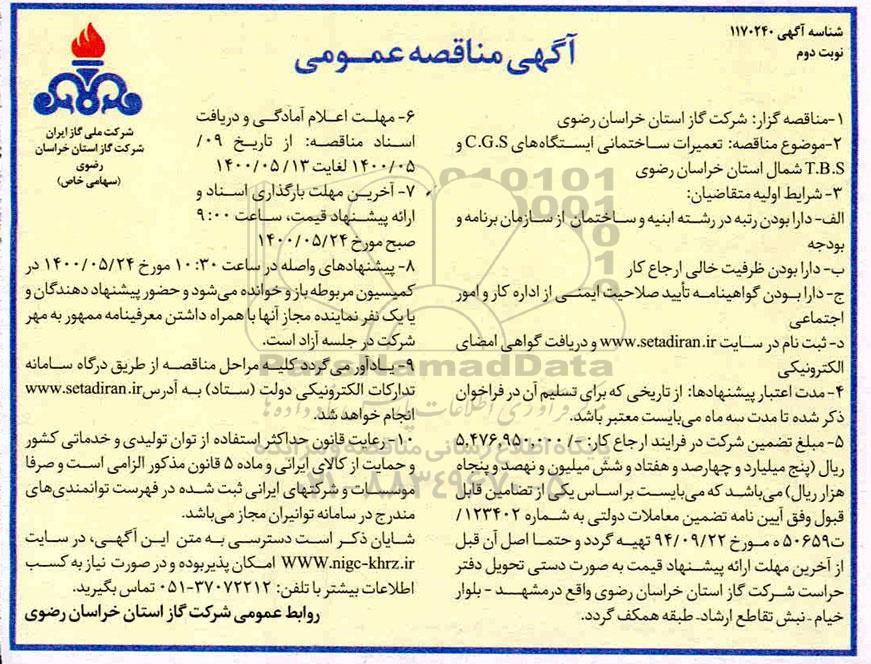 شناسه آگهی ۱۱۷۰۲۴۰
نوبت دوم
آگهی مناقصه عمومی
شرکت ملی گاز ایران
شرکت گاز استان خراسان
رضوی
(سهامی خاص)
۱-مناقصه گزار: شرکت گاز استان خراسان رضوی
۲-موضوع مناقصه: تعمیرات ساختمانی ایستگاه‌های C.G.S و
T.B.S شمال استان خراسان رضوی
۳- شرایط اولیه متقاضیان:
الف- دارا بودن رتبه در رشته ابنیه و ساختمان از سازمان برنامه و
بودجه
ب- دارا بودن ظرفیت خالی ارجاع کار
ج- دارا بودن گواهینامه تأیید صلاحیت ایمنی از اداره کار و امور
اجتماعی
د- ثبت نام در سایت www.setadiran.ir و دریافت گواهی امضای
الکترونیکی
۴- مدت اعتبار پیشنهادها: از تاریخی که برای تسلیم آن در فراخوان
ذکر شده تا مدت سه ماه می‌بایست معتبر باشد.
۵- مبلغ تضمین شرکت در فرایند ارجاع کار: -/ ۵,۴۷۶,۹۵۰,۰۰۰
ریال (پنج میلیارد و چهارصد و هفتاد و شش میلیون و نهصد و پنجاه
هزار ریال) می‌باشد که می‌بایست بر اساس یکی از تضامین قابل
قبول وفق آیین نامه تضمین معاملات دولتی به شماره ۱۲۳۴۰۲/
ت۵۰۶۵۹ ه مورخ ۹۴/۰۹/۲۲ تهیه گردد و حتما اصل آن قبل
از آخرین مهلت ارائه پیشنهاد قیمت به صورت دستی تحویل دفتر
حراست شرکت گاز استان خراسان رضوی واقع درمشهد - بلوار
خیام - نبش تقاطع ارشاد- طبقه همکف گردد.
۶- مهلت اعلام آمادگی و دریافت
اسناد مناقصه: از تاریخ ۰۹/
۱۴۰۰/۰۵ لغایت ۱۴۰۰/۰۵/۱۳
۷- آخرین مهلت بارگذاری اسناد و
ارائه پیشنهاد قیمت، ساعت ۹:۰۰
صبح مورخ ۱۴۰۰/۰۵/۲۴
۸- پیشنهادهای واصله در ساعت ۱۰:۳۰ مورخ ۱۴۰۰/۰۵/۲۴ در
کمیسیون مربوطه باز و خوانده می‌شود و حضور پیشنهاد دهندگان و
یا یک نفر نماینده مجاز آنها با همراه داشتن معرفینامه ممهور به مهر
شرکت در جلسه آزاد است.
۹- یادآور می‌گردد کلیه مراحل مناقصه از طریق درگاه سامانه
تدارکات الکترونیکی دولت (ستاد) به آدرس www.setadiran.ir
انجام خواهد شد.
۱۰- رعایت قانون حداکثر استفاده از توان تولیدی و خدماتی کشور
و حمایت از کالای ایرانی و ماده ۵ قانون مذکور الزامی است و صرفا
موسسات و شرکتهای ایرانی ثبت شده در فهرست توانمندی‌های
مندرج در سامانه توانیران مجاز می‌باشد.
شایان ذکر است دسترسی به متن این آگهی، در سایت
WWW.nigc-khrz.ir امکان پذیر بوده و در صورت نیاز به کسب
اطلاعات بیشتر با تلفن: ۳۷۰۷۲۲۱۲-۰۵۱ تماس بگیرید.
روابط عمومی شرکت گاز استان خراسان رضوی
ParsNamadData